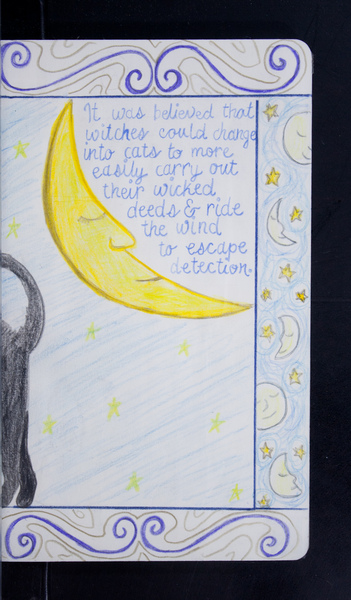 It was believed that
witches could change
into cats to more
easily carry out
their wicked
deeds & ride
the wind
to escape
detection.